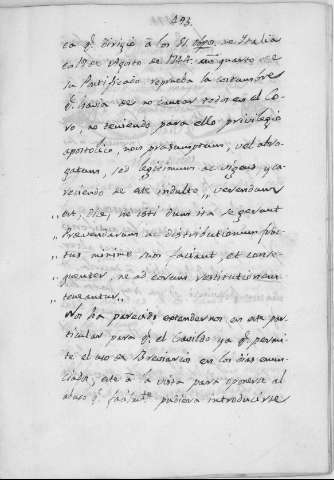 493.
ca q.e dirigio à los SS. Obpos. de Italia
en 19 de Agosto de 1744. año quarto de
su Pontificado reprueba la costumbre
q.e havia de no cantar todos en el Co-
ro, no teniendo para ello privilegio
apostolico, non præsumptum, vel abro-
gatum, sed legitimum ac vigens y ca-
reciendo de este indulto ,, verendum
,, est, dice, ne isti dum ita se gerunt
,, Præbendarum ac distributionum fruc-
,, tus minime suos faciant, et conse-
,, quenter, ne ad eorum restitutionem
,, teneantur,,
Nos ha parecido extendernos en este par-
ticular para q.e el Cavildo ya q.e permi-
te el uso de Breviarios en los dias enun-
ciados, este à la vista para oponerse al
abuso q.e facilm.te pudiera introducirse